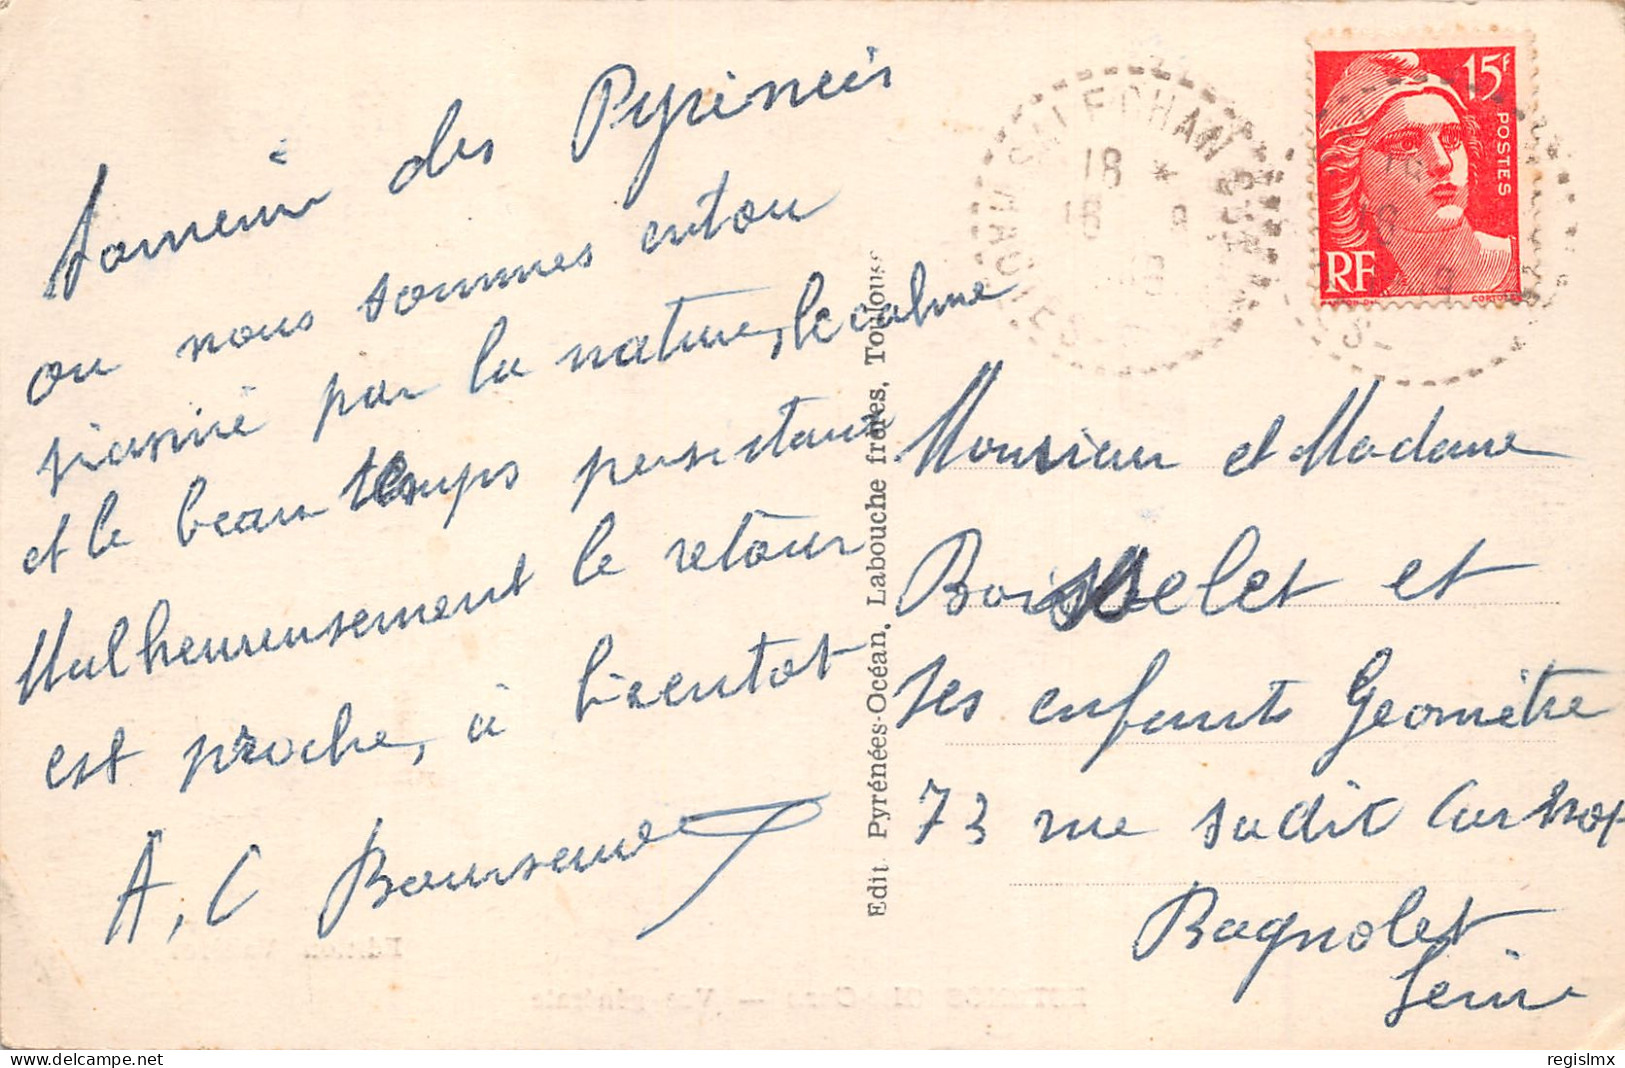 souvenir des Pyrineis
ou nous sommes entou
par la nature, le calme
et le beau temps persistant
Malheureusement le retour
est proche, à bientot
A, C
Edit. Pyrénées-Océan, Labouche frères, Toulouse
SALECHAN
18 *
18 9
15f
POSTES
RF
Monsieur et Madame
Boisselet et
ses enfants Geomètre
73 rue Sadit Carnot
Bagnolet
Seine
Vue générale
regislmx